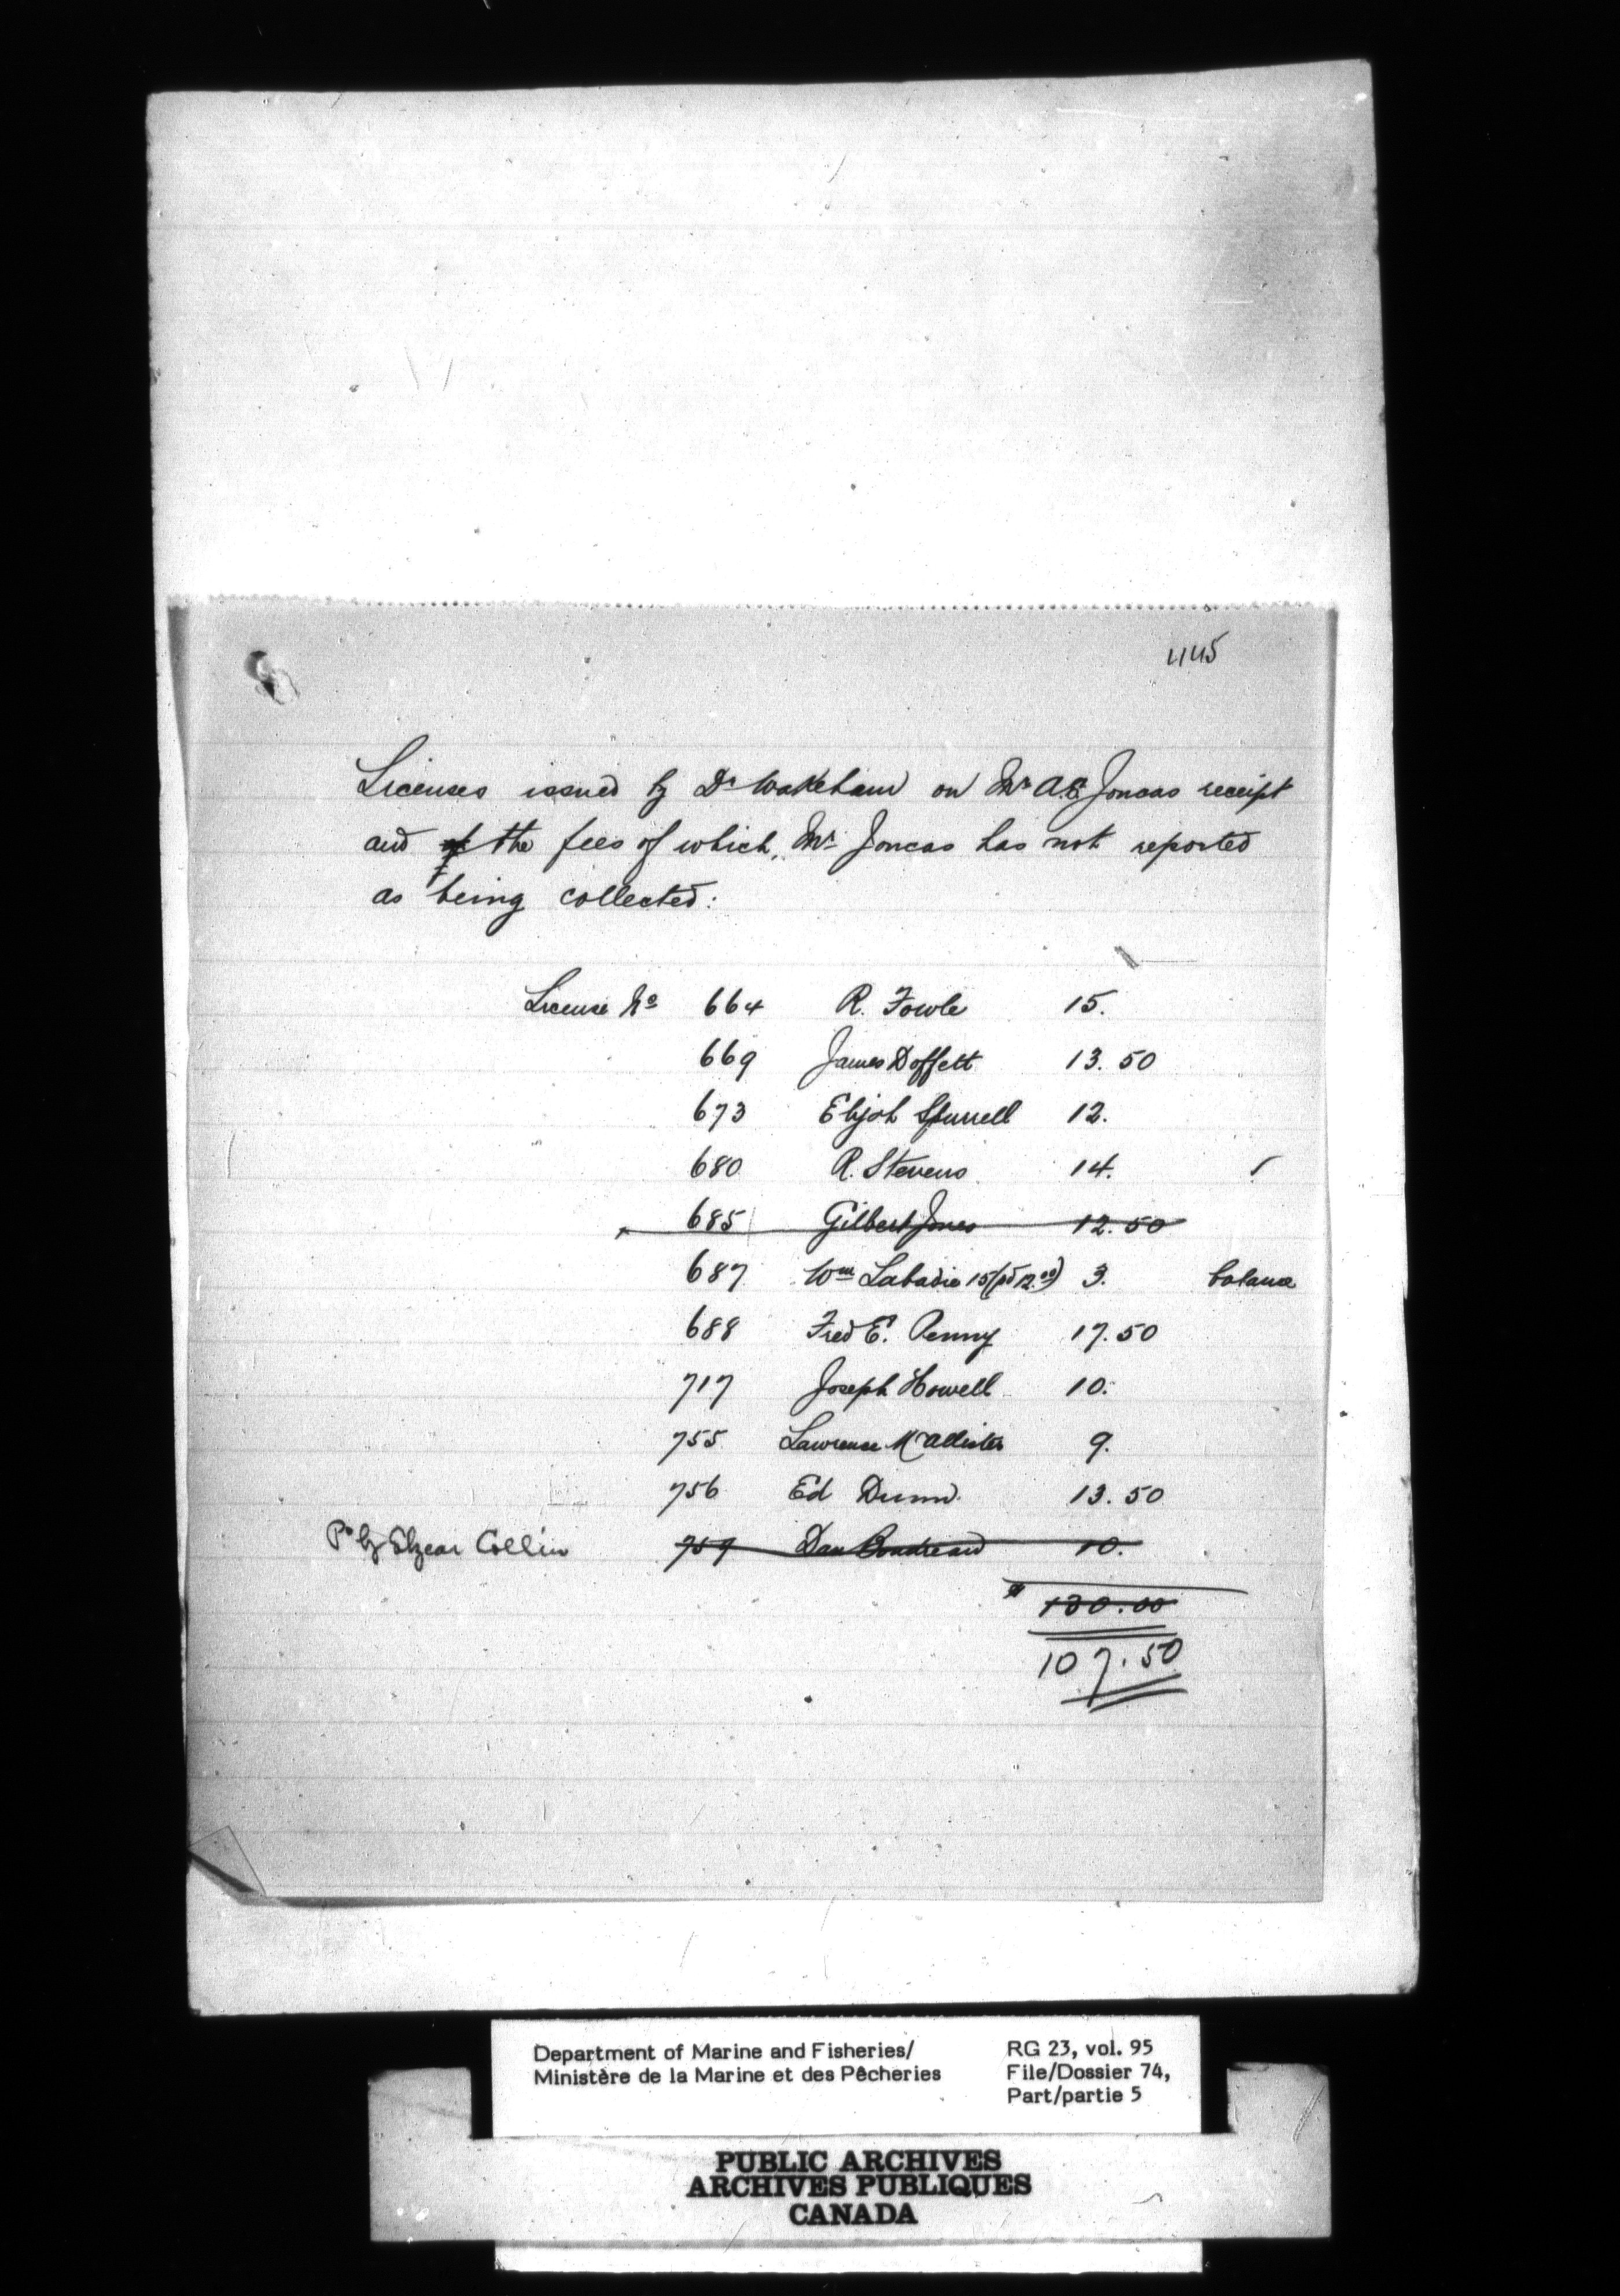 445
Licenses issued by Dr Wakeham on Mr A.E. Joncas receipt
and of the fees of which, Mr Joncas has not reported
as being collected:
License No 664 R. Fowle 15.
669 James Doffett 13.50
673 Elijah Spurrell 12.
680 R. Stevens 14.
685 Gilbert Jones 12.50
687 Wm Labadie 15 (pd 12.00) 3. balance
688 Fred E. Penny 17.50
717 Joseph Howell 10.
755 Lawrence McAllister 9.
756 Ed Dunn 13.50
Pd by Elzear Collin 759 Dan Boudreau 10.
$ 130.00
107.50
Department of Marine and Fisheries/ RG 23, vol. 95
Ministère de la Marine et des Pêcheries File/Dossier 74,
Part/partie 5
PUBLIC ARCHIVES
ARCHIVES PUBLIQUES
CANADA